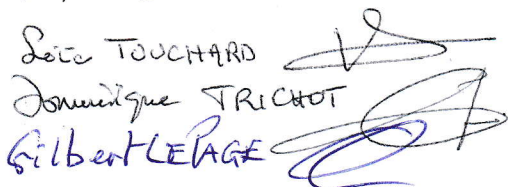 Loïc TOUCHARD
Dominique TRICHOT
Gilbert LEPAGE